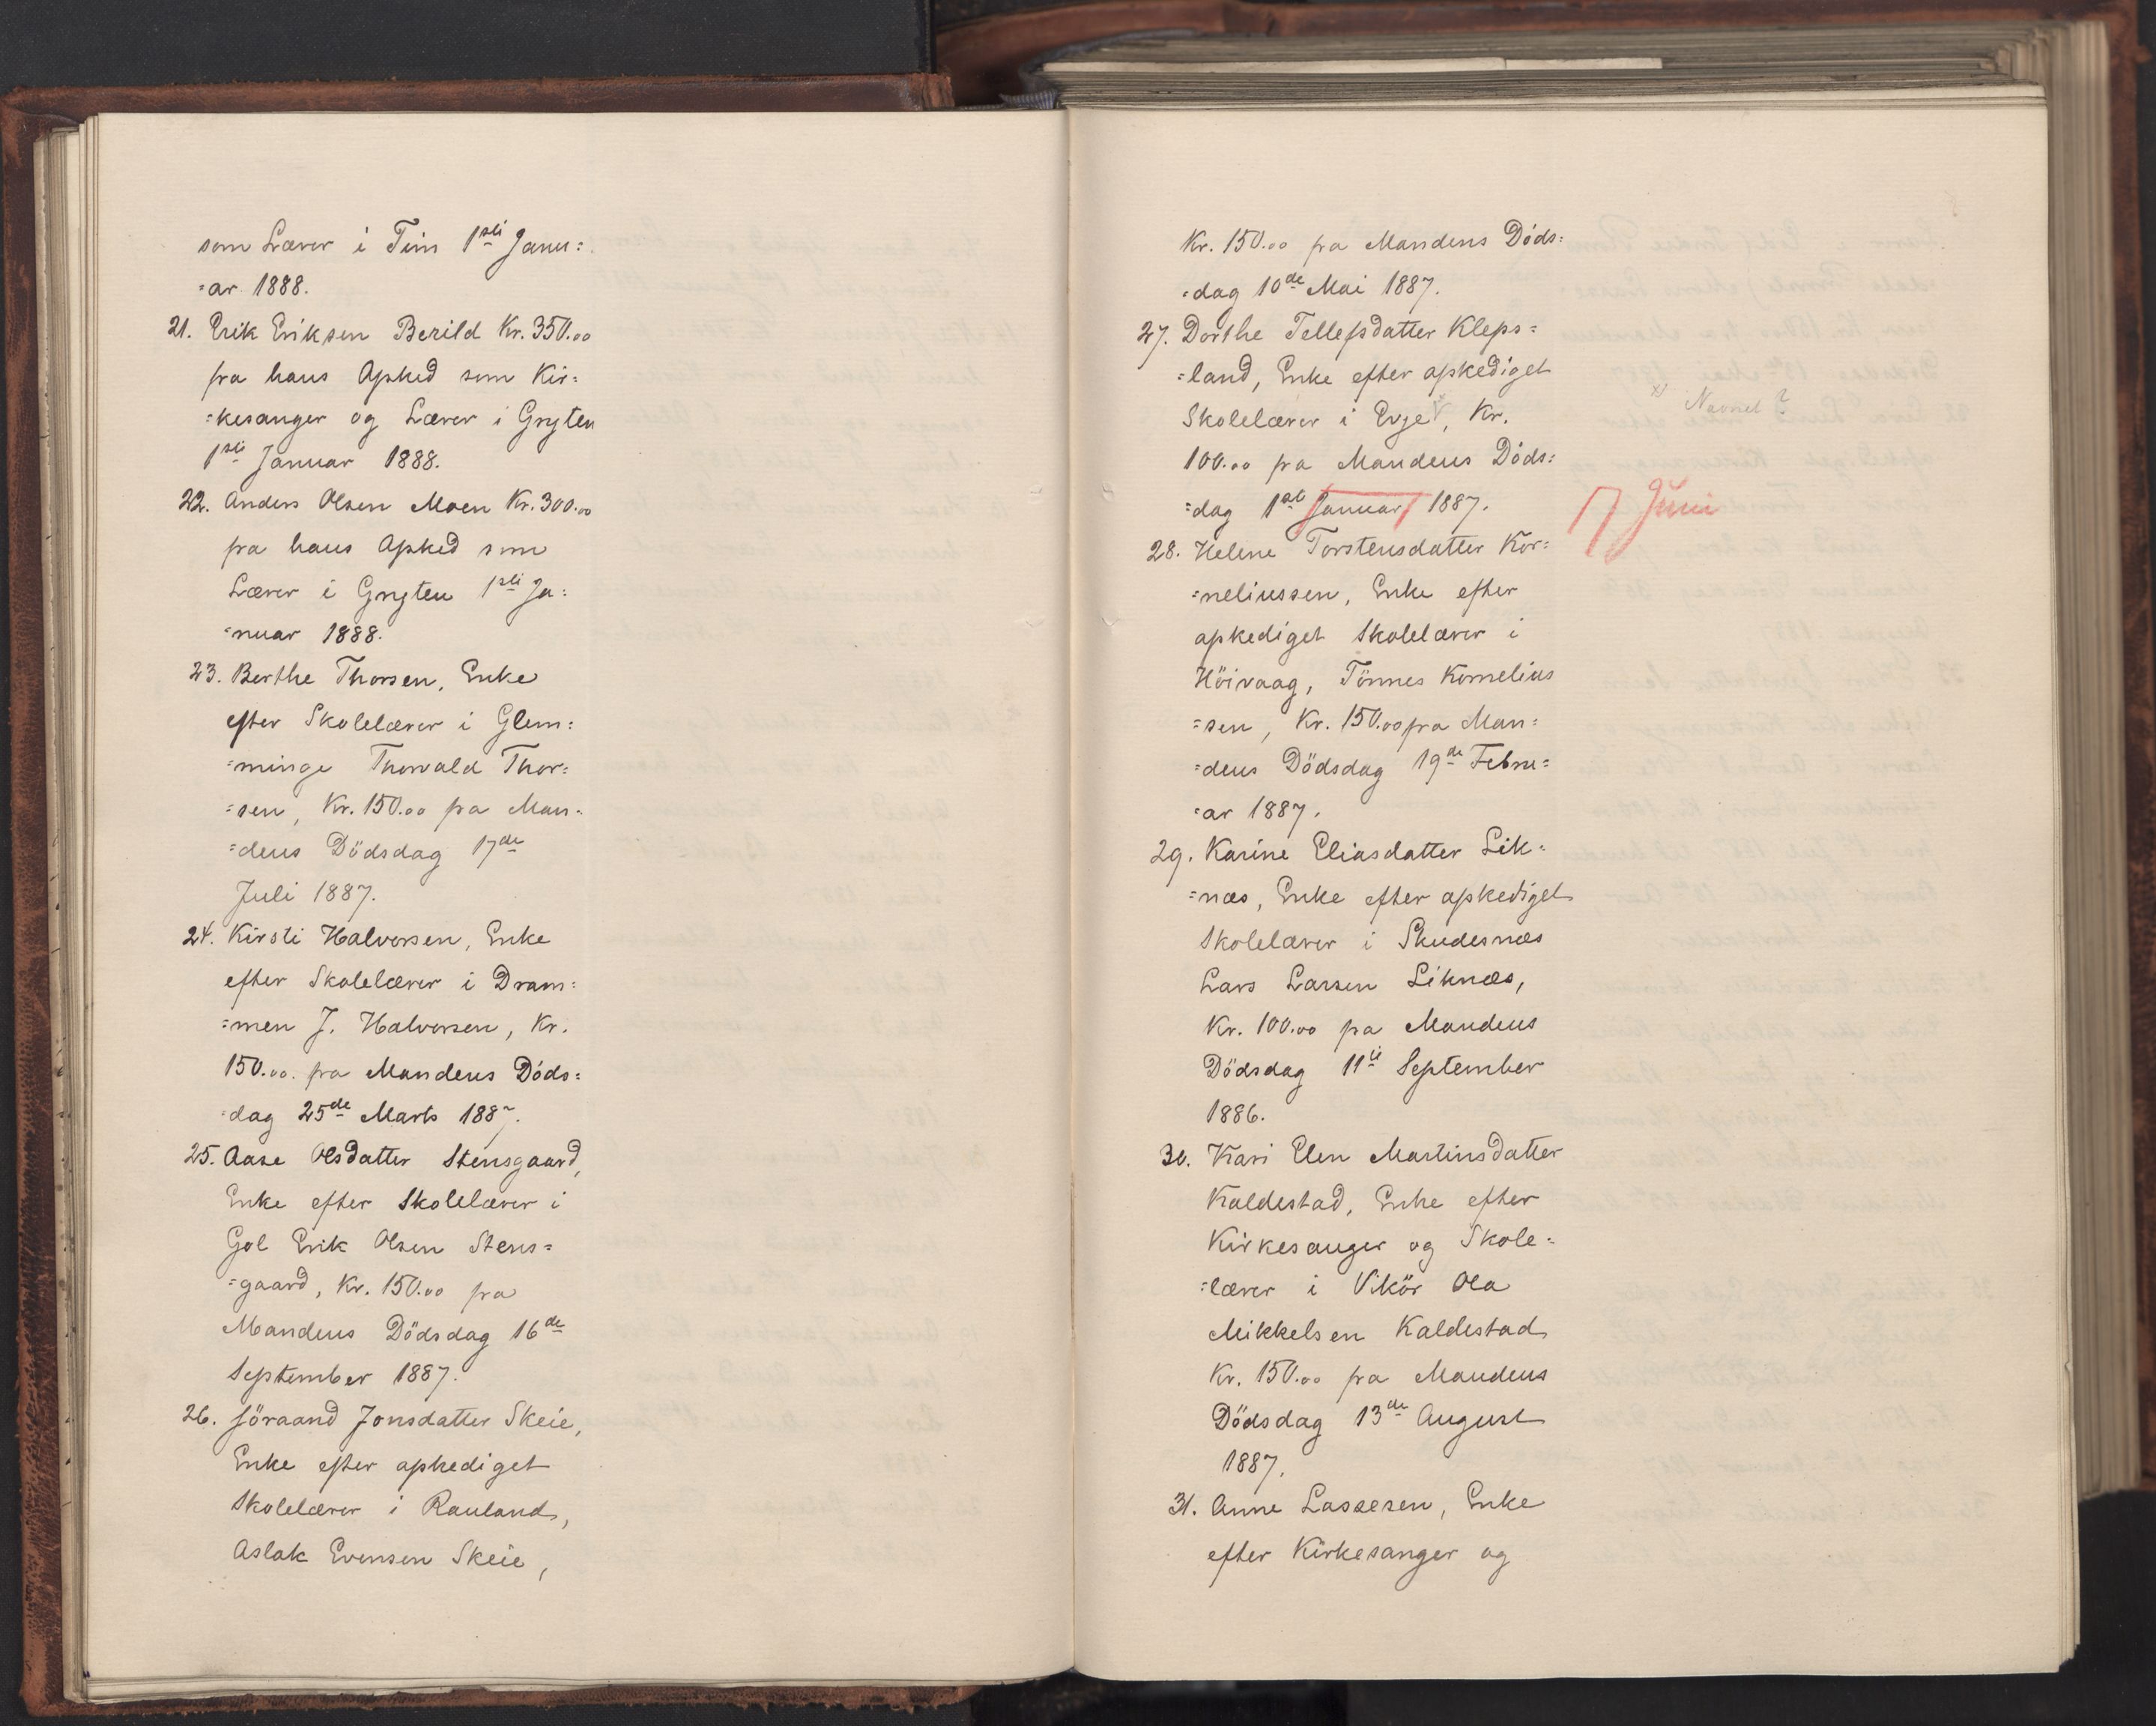 som Lærer i Tim 1sti Janu=
=ar 1888.
21. Erik Eriksen Berild Kr. 350.00
fra hans Afsked som Kir=
=kesanger og Lærer i Gryten
1sti Januar 1888.
22. Anders Olsen Moen Kr. 300.00
fra hans Afsked som
Lærer i Gryten 1sti Ja=
=nuar 1888.
23. Berthe Thorsen, Enke
efter Skolelærer i Glem=
=minge Thorvald Thor=
=sen, Kr. 150.00 fra Man=
=dens Dödsdag 17de
Juli 1887.
24. Kirsti Halvorsen, Enke
efter Skolelærer i Dram=
=men J. Halvorsen, Kr.
150.00. fra Mandens Döds=
=dag 25de Marts 1887.
25. Aase Olsdatter Stensgaard,
Enke efter Skolelærer i
Gol Erik Olsen Stens=
=gaard, Kr. 150.00 fra
Mandens Dödsdag 16de
September 1887.
26. Jöraand Jonsdatter Skeie,
Enke efter afskediget
Skolelærer i Rauland,
Aslak Evensen Skeie,
Kr. 150.00 fra Mandens Döds=
=dag 10de Mai 1887.
27. Dorthe Tellefsdatter Kleps=
=land, Enke efter afskediget
Skolelærer i Evje x), Kr.
x) Navnet?
100.00 fra Mandens Döds=
=dag 1ste Januar 1887.
Juni
28. Helene Torstensdatter Kor=
=neliussen, Enke efter
afskediget Skolelærer i
Höivaag, Tönnes Kornelius
=sen, Kr. 150.00 fra Man=
=dens Dödsdag 19de Febru=
=ar 1887.
29. Karine Eliasdatter Lik=
=næs, Enke efter afskediget
Skolelærer i Skudesnæs
Lars Larsen Liknæs,
Kr. 100.00 fra Mandens
Dödsdag 11te September
1886.
30. Kari Elen Martinsdatter
Kaldestad, Enke efter
Kirkesanger og Skole=
=lærer i Vikör Ola
Mikkelsen Kaldestad
Kr. 150.00 fra Mandens
Dödsdag 13de August
1887.
31. Anne Lassesen, Enke
efter Kirkesanger og